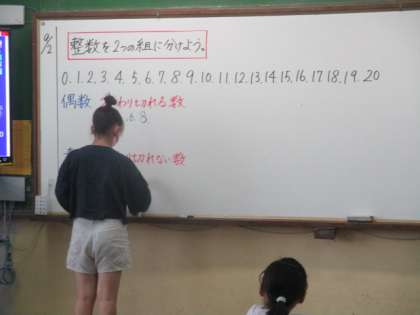 9/2
整数を2つの組に分けよう。
0.1.2.3.4.5.6.7.8.9.10.11.12.13.14.15.16.17.18.19.20
偶数 わりきれる数
6 8
きれない数